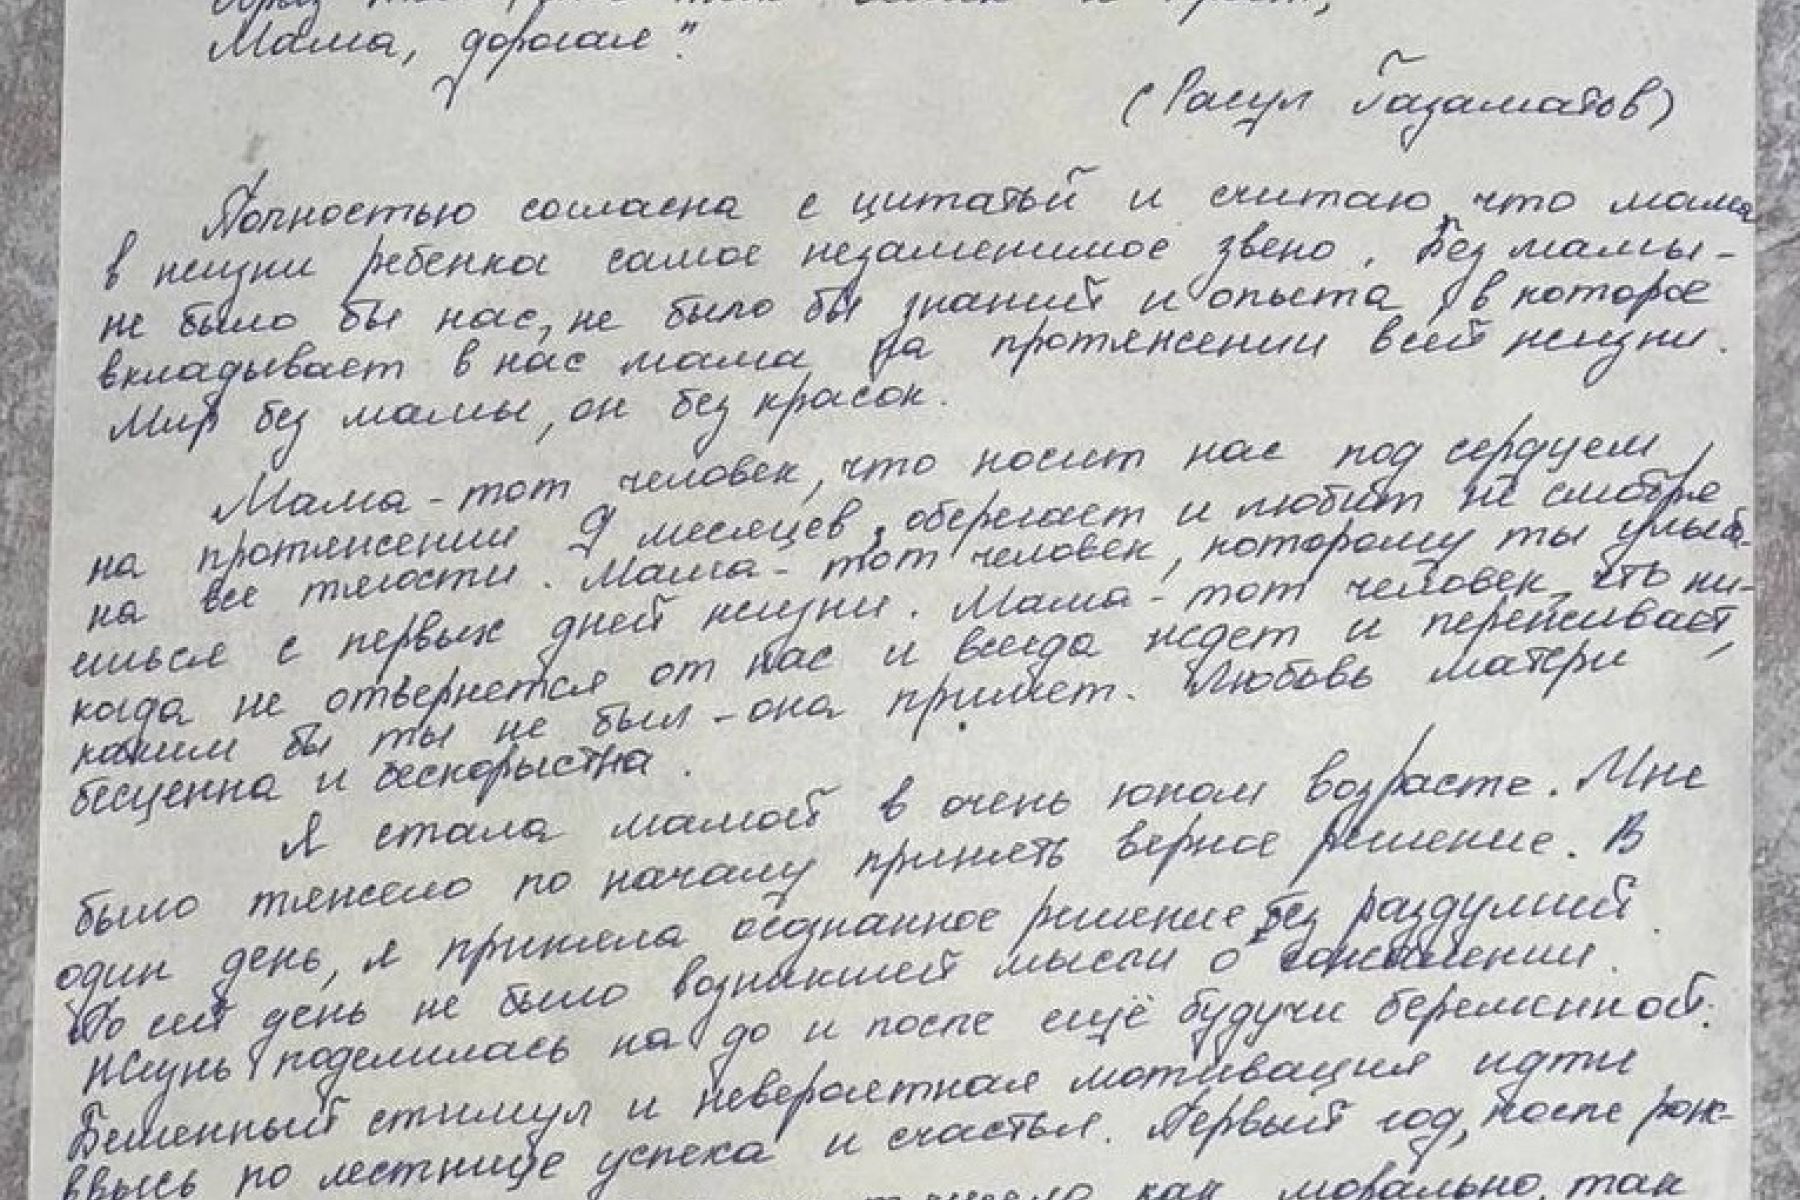 Мама, дорогая".
(Расул Газаматов)
Полностью согласна с цитатый и считаю, что мама
в жизни ребенка самое незаменимое звено. Без мамы -
не было бы нас, не было бы знаний и опыта, в которое
вкладывает в нас мама на протяжении всей жизни.
Мир без мамы, он без красок.
Мама - тот человек, что носит нас под сердцем,
на протяжении 9 месяцев, оберегает и любит не смотря
на все тягости. Мама - тот человек, которому ты улыба-
ешься с первых дней жизни. Мама - тот человек, что ни-
когда не отвернется от нас и всегда ждет и переживает,
каким бы ты не был - она примет. Любовь матери
бесценна и бескорыстна.
Я стала мамой в очень юном возрасте. Мне
было тяжело по началу принять верное решение. В
один день, я приняла осознанное решение без раздумий.
По сей день не было возникшей мысли о сожалении.
Жизнь поделилась на до и после ещё будучи беременной.
Бешенный стимул и невероятная мотивация идти
ввысь по лестнице успеха и счастья. Первый год, после рож-
как морально, так